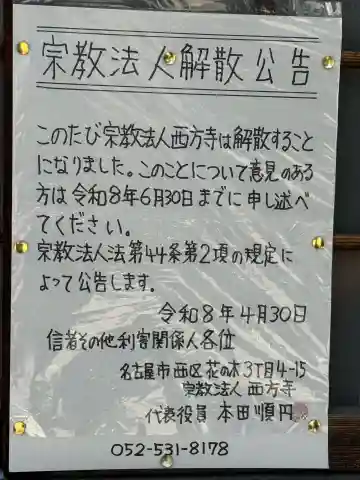 宗教法人解散公告
このたび宗教法人西方寺は解散すること
になりました。このことについて意見のある
方は令和8年6月30日までに申し述べ
てください。
宗教法人法第44条第2項の規定に
よって公告します。
令和8年4月30日
信者その他利害関係人各位
名古屋市西区花の木3丁目4-15
宗教法人 西方寺
代表役員 本田順円
052-531-8178